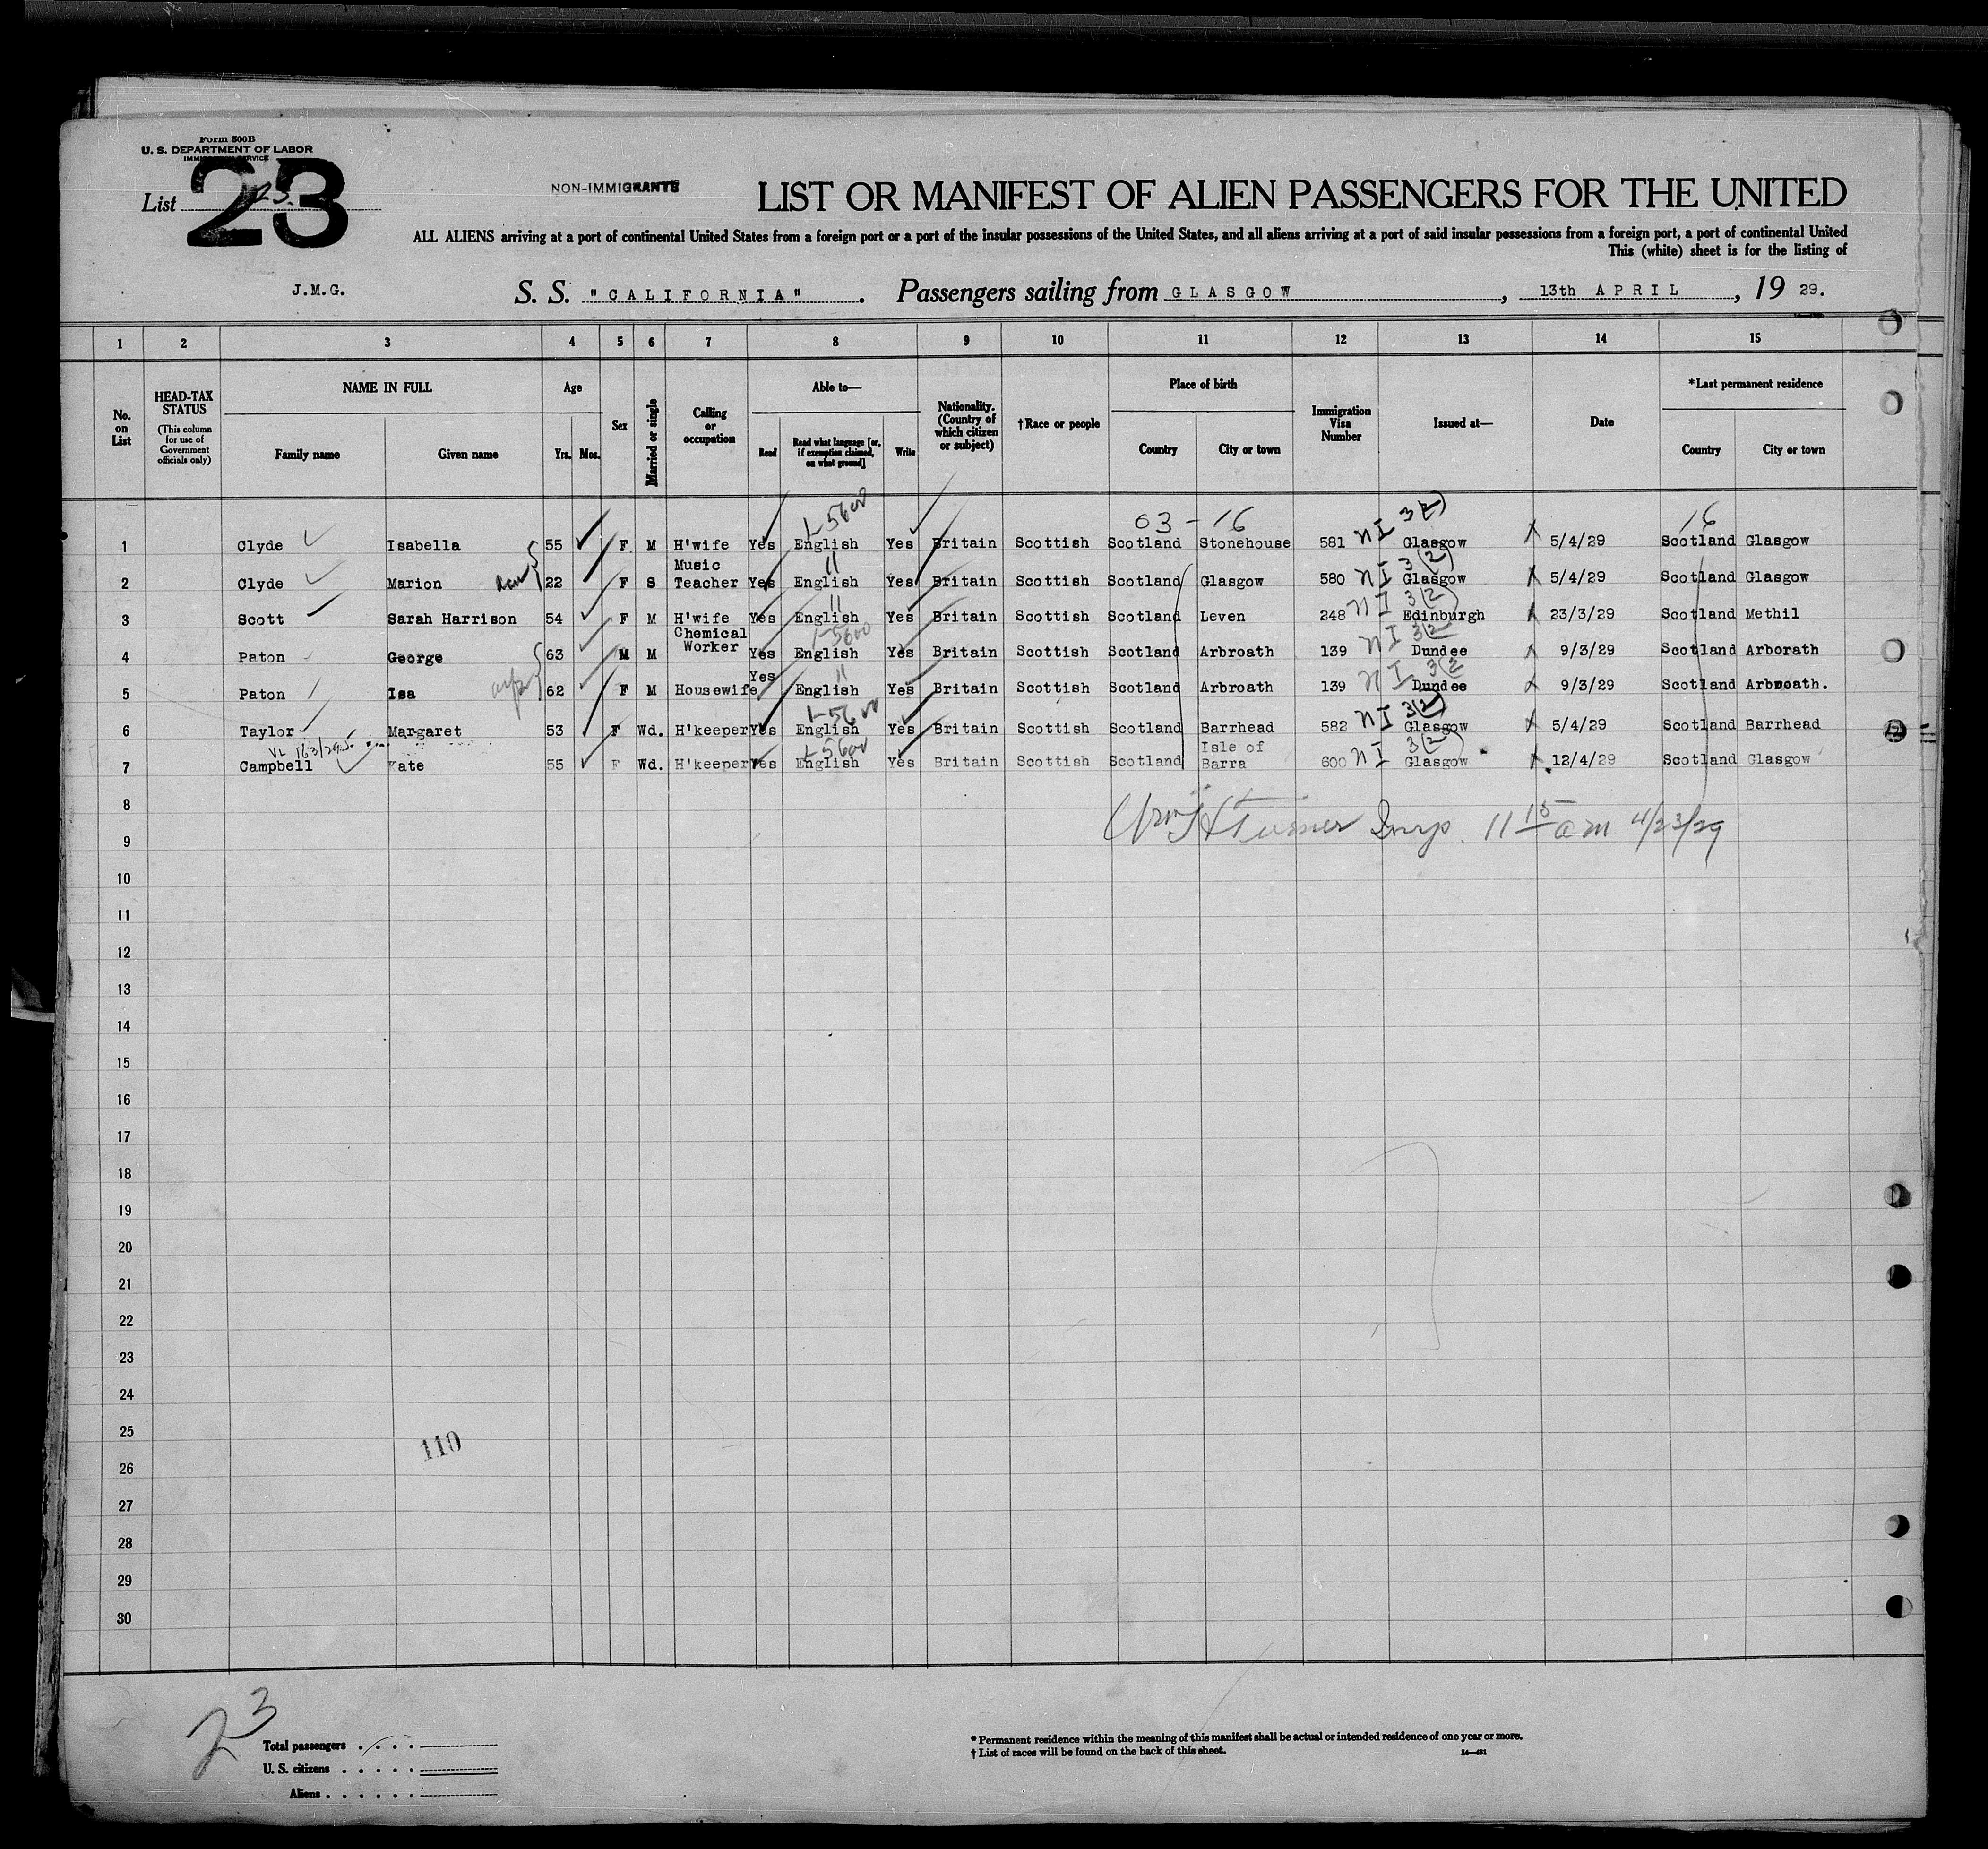 Form 500B
U. S. DEPARTMENT OF LABOR
List 23
NON-IMMIGRANTS
LIST OR MANIFEST OF ALIEN PASSENGERS FOR THE UNITED
ALL ALIENS arriving at a port of continental United States from a foreign port or a port of the insular possessions of the United States, and all aliens arriving at a port of said insular possessions from a foreign port, a port of continental United
This (white) sheet is for the listing of
J.M.G.
S. S. "CALIFORNIA" . Passengers sailing from GLASGOW, 13th APRIL, 19 29.
1 2 3 4 5 6 7 8 9 10 11 12 13 14 15
No. on List
HEAD-TAX STATUS
(This column for use of Government officials only)
NAME IN FULL
Family name Given name
Age
Yrs. Mos.
Sex
Married or single
Calling or occupation
Able to—
Read
Read what language [or, if exemption claimed, on what ground]
Write
Nationality. (Country of which citizen or subject)
†Race or people
Place of birth
Country City or town
Immigration Visa Number
Issued at—
Date
*Last permanent residence
Country City or town
03 - 16 NI 3(2) 16
1 Clyde Isabella 55 F M H'wife Yes English Yes Britain Scottish Scotland Stonehouse 581 Glasgow 5/4/29 Scotland Glasgow
2 Clyde Marion 22 F S Music Teacher Yes English Yes Britain Scottish Scotland Glasgow 580 NI 3(2) Glasgow 5/4/29 Scotland Glasgow
3 Scott Sarah Harrison 54 F M H'wife Yes English Yes Britain Scottish Scotland Leven 248 NI 3(2) Edinburgh 23/3/29 Scotland Methil
4 Paton George 63 M M Chemical Worker Yes English Yes Britain Scottish Scotland Arbroath 139 NI 3(2 Dundee 9/3/29 Scotland Arborath
5 Paton Isa 62 F M Housewife Yes English Yes Britain Scottish Scotland Arbroath 139 NI 3(2 Dundee 9/3/29 Scotland Arbroath.
6 Taylor Margaret 53 F Wd. H'keeper Yes English Yes Britain Scottish Scotland Barrhead 582 NI 3(2) Glasgow 5/4/29 Scotland Barrhead
7 Campbell Kate 55 F Wd. H'keeper Yes English Yes Britain Scottish Scotland Isle of Barra 600 NI 3(2) Glasgow 12/4/29 Scotland Glasgow
8
Turner Insp. 11 15 am 4/23/29
9
10
11
12
13
14
15
16
17
18
19
20
21
22
23
24
25
110
26
27
28
29
30
23
Total passengers
U. S. citizens
Aliens
* Permanent residence within the meaning of this manifest shall be actual or intended residence of one year or more.
† List of races will be found on the back of this sheet.